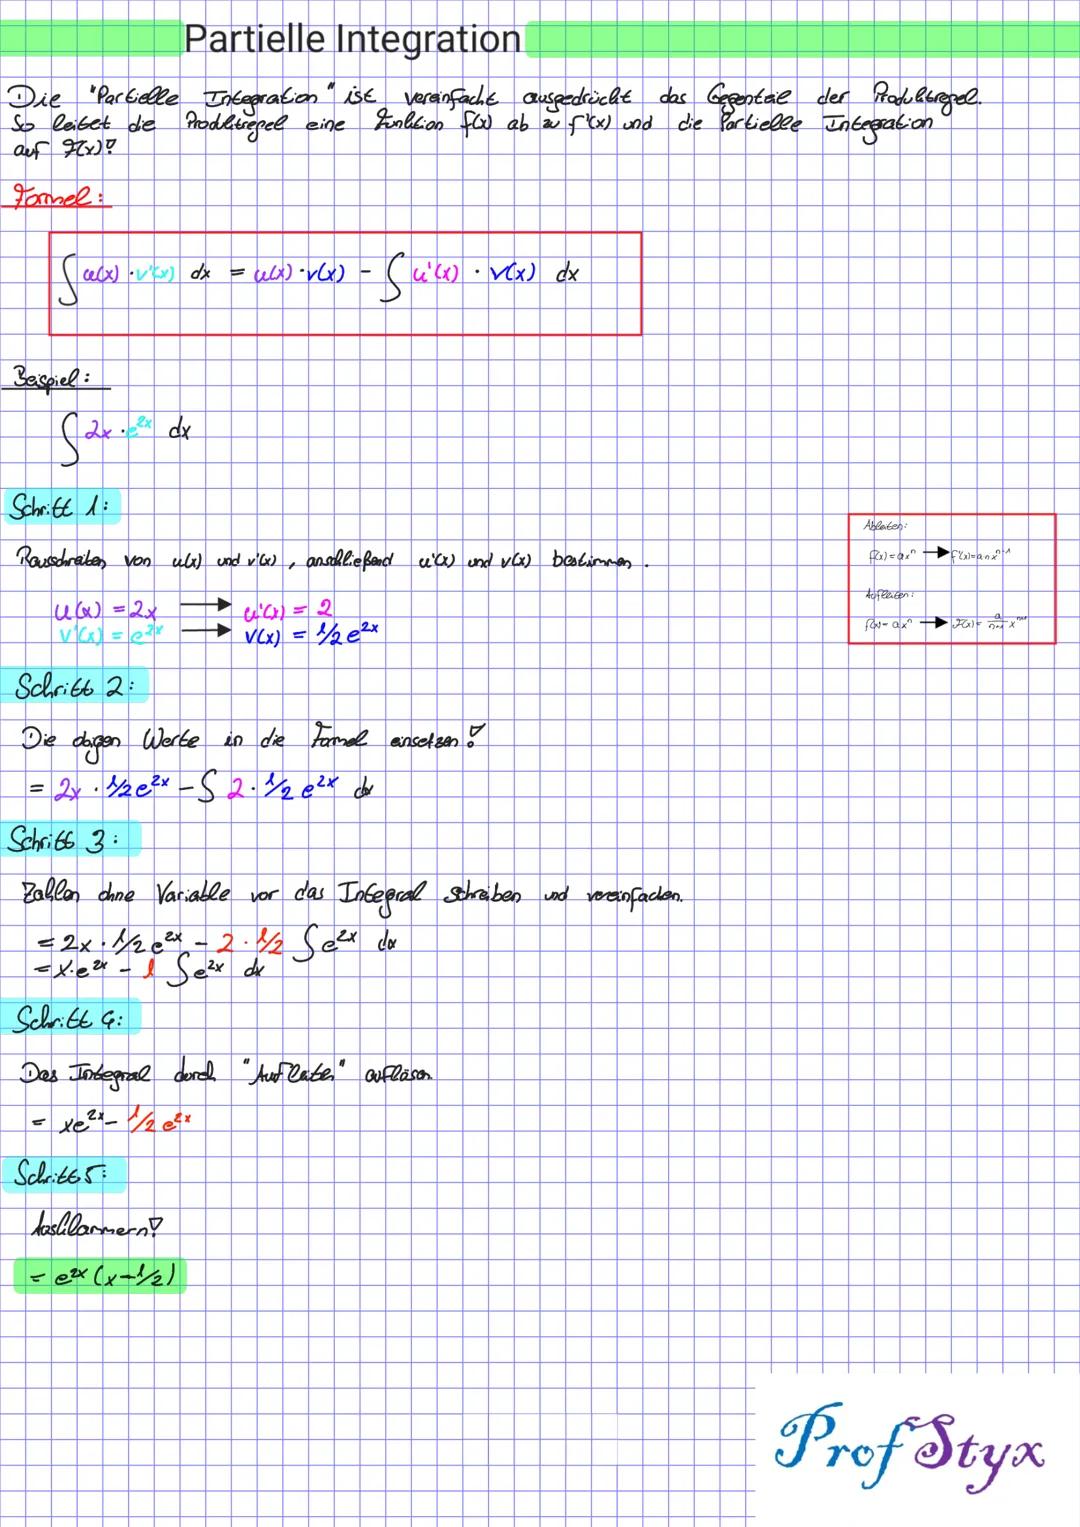 Partielle Integration
Die "Partielle Integration" ist vereinfacht ausgedrückt das Gegenteil der Produktregel.
So leitet die Produktregel eine Funktion f(x) ab zu f'(x) und die Partielle Integration
auf F(x)!
Formel:
∫ u(x) · v'(x) dx = u(x) · v(x) - ∫ u'(x) · v(x) dx
Beispiel:
∫ 2x · e^2x dx
Schritt 1:
Rausschreiben von u(x) und v'(x), anschließend u'(x) und v(x) bestimmen.
u(x) = 2x → u'(x) = 2
v'(x) = e^2x → v(x) = 1/2 e^2x
Ableiten:
f(x) = ax^n → f'(x) = a·n x^n-1
Aufleiten:
f(x) = ax^n → F(x) = a/n+1 x^n+1
Schritt 2:
Die obigen Werte in die Formel einsetzen!
= 2x · 1/2 e^2x - ∫ 2 · 1/2 e^2x dx
Schritt 3:
Zahlen ohne Variable vor das Integral schreiben und vereinfachen.
= 2x · 1/2 e^2x - 2 · 1/2 ∫ e^2x dx
= x·e^2x - 1 ∫ e^2x dx
Schritt 4:
Das Integral durch "Aufleiten" auflösen.
= xe^2x - 1/2 e^2x
Schritt 5:
Ausklammern!
= e^2x (x-1/2)
Prof Styx